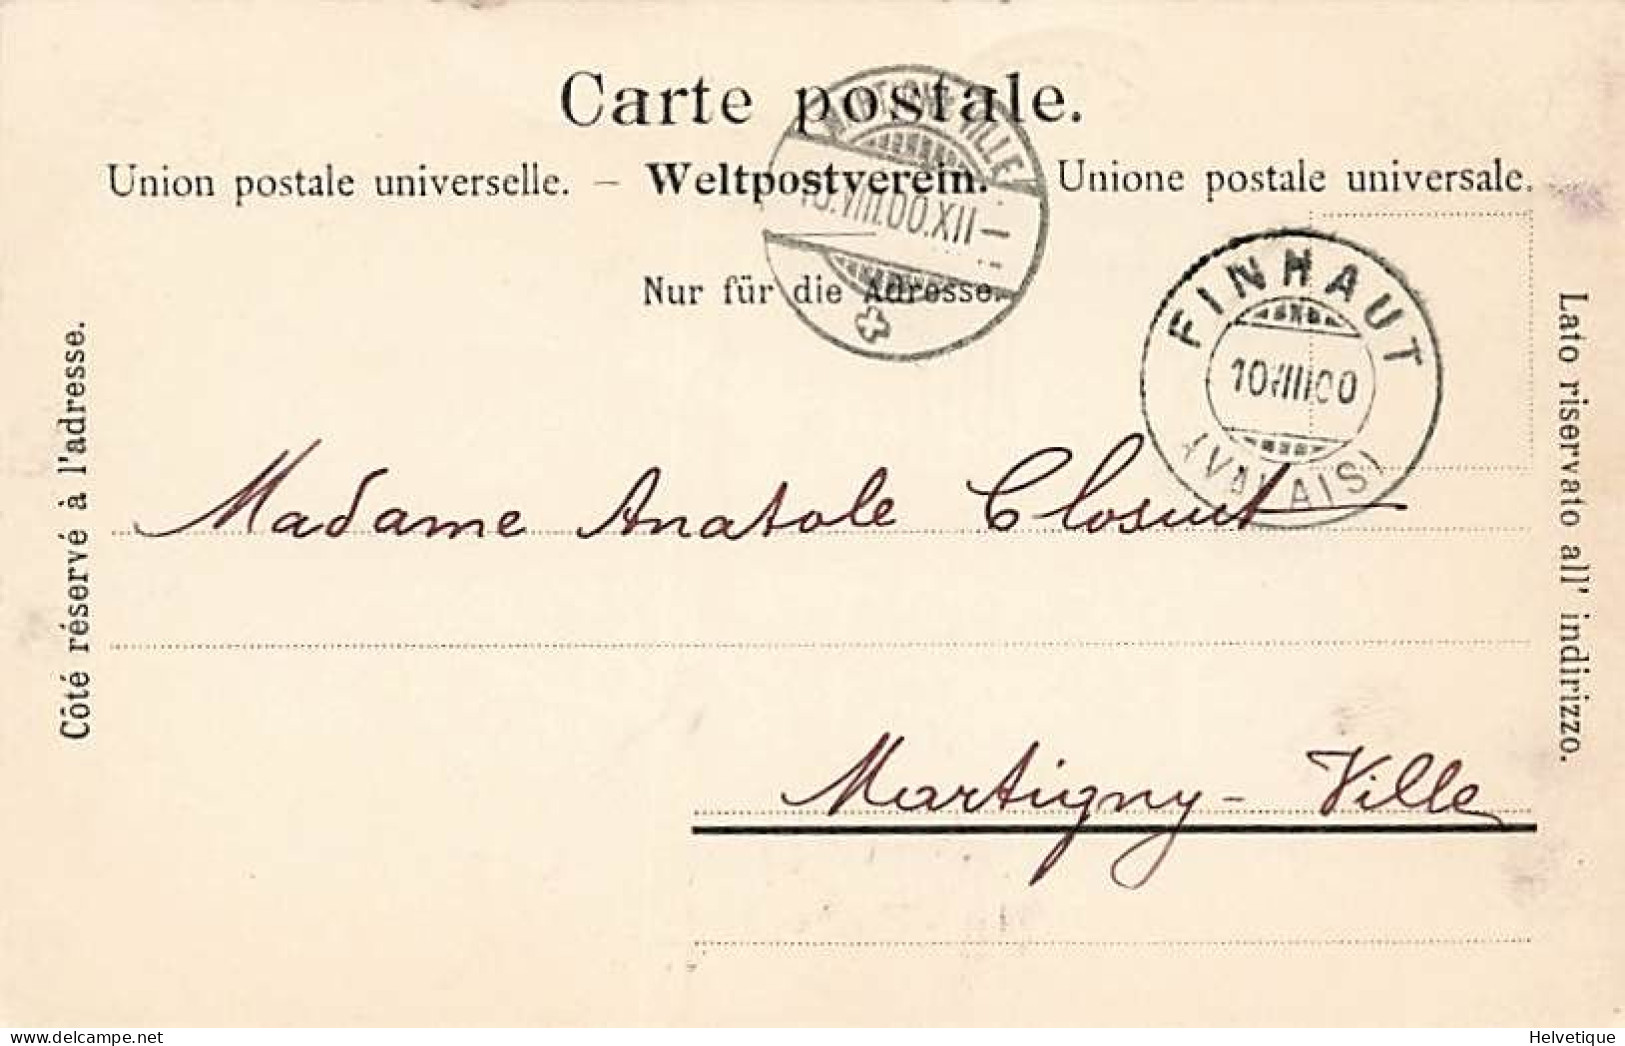 Carte postale.
Union postale universelle. – Weltpostverein. Unione postale universale.
Nur für die Adresse.
Côté réservé à l'adresse.
Lato riservato all' indirizzo.
VILLE
10.VIII.00.XII –
FINHAUT
10.VIII.00
(VALAIS)
Madame Anatole Closuit
Martigny - Ville
Helvetique